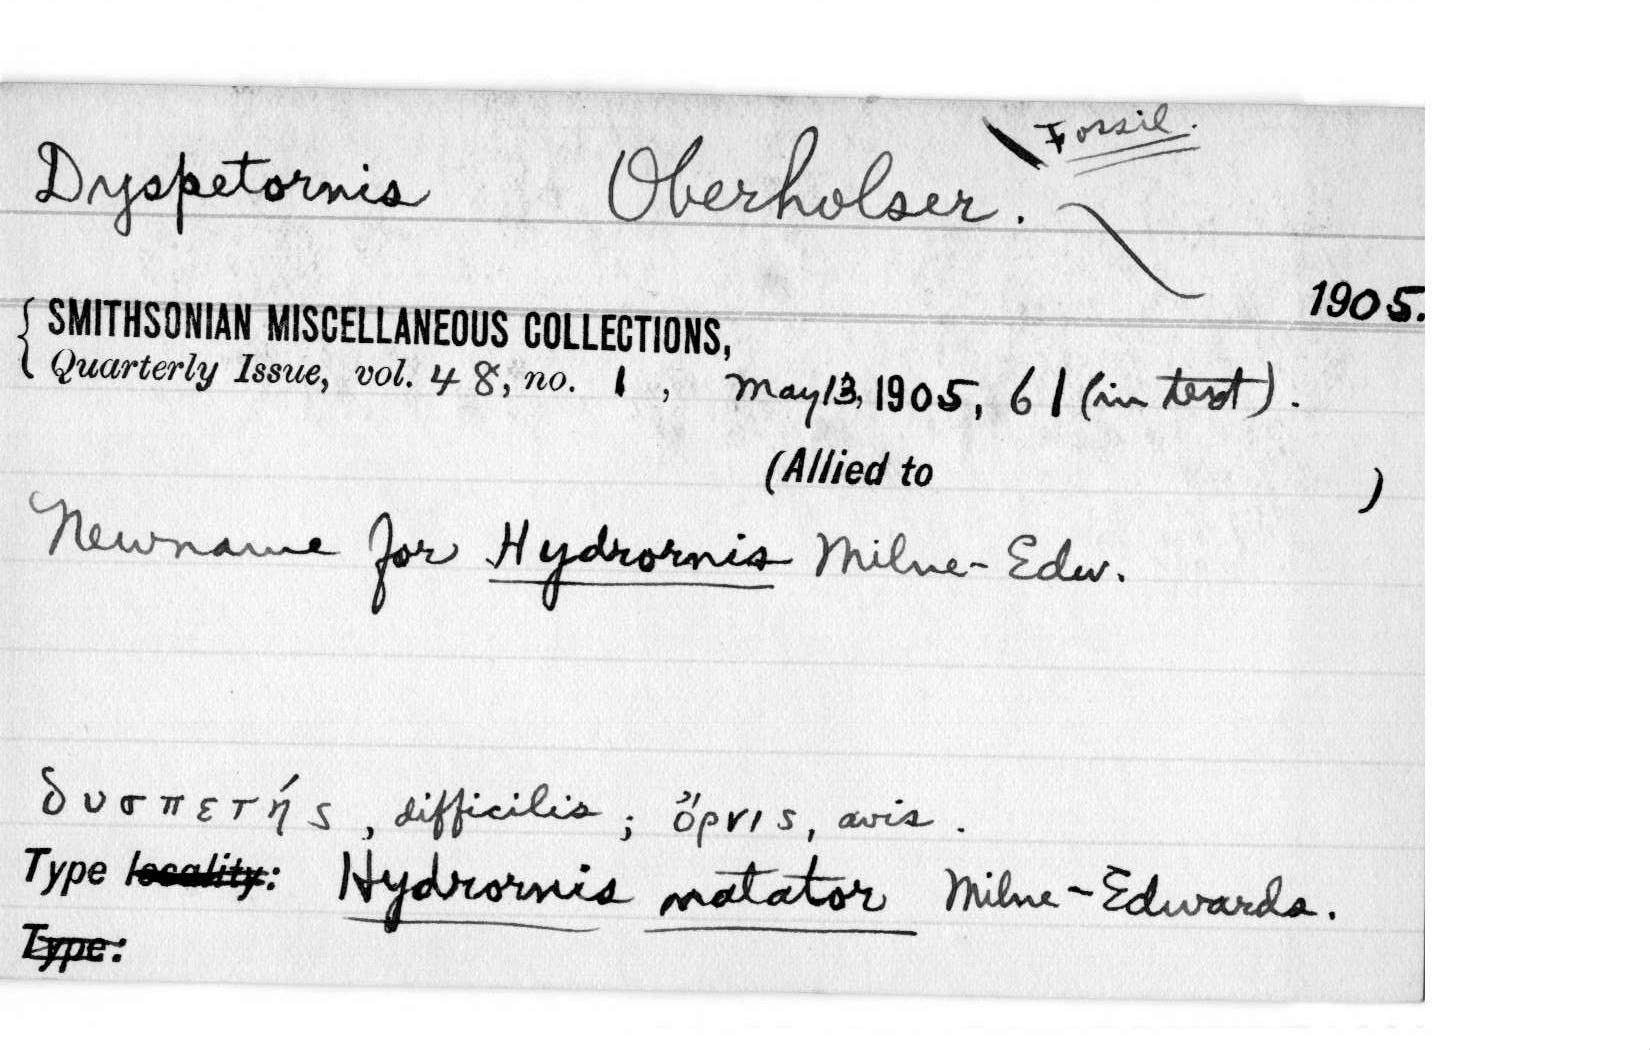 Fossil.
Dyspetornis Oberholser.
1905.
SMITHSONIAN MISCELLANEOUS COLLECTIONS,
Quarterly Issue, vol. 48, no. 1, May 13, 1905, 61 (in text).
(Allied to )
New name for Hydrornis Milne-Edw.
δυσπετής, difficilis; ὄρνις, avis.
Type locality: Hydrornis natator Milne-Edwards.
Type: